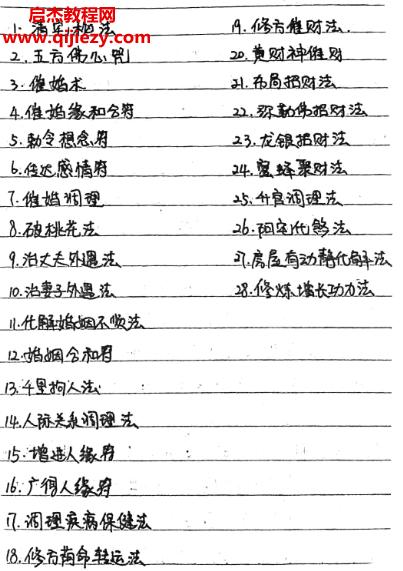 启杰教程网
www.qijiezy.com
1.清
2.五方佛心咒
3.催婚术
4.催婚缘和合符
5.勅令想念符
6.传达感情符
7.催婚调理
8.破桃花法
9.治丈夫外遇法
10.治妻子外遇法
11.化解婚姻不顺法
12.婚姻合和符
13.千里拘人法
14.人际关系调理法
15.增进人缘符
16.广得人缘符
17.调理疾病保健法
18.修方荫命转运法
19.修方催财法.
20.黄财神催财
21.布局招财法
22.弥勒佛招财法
23.龙银招财法
24.蜜蜂聚财法
25.升官调理法
26.阳宅化煞法
27.房屋有动静化解法
28.修炼增长功力法